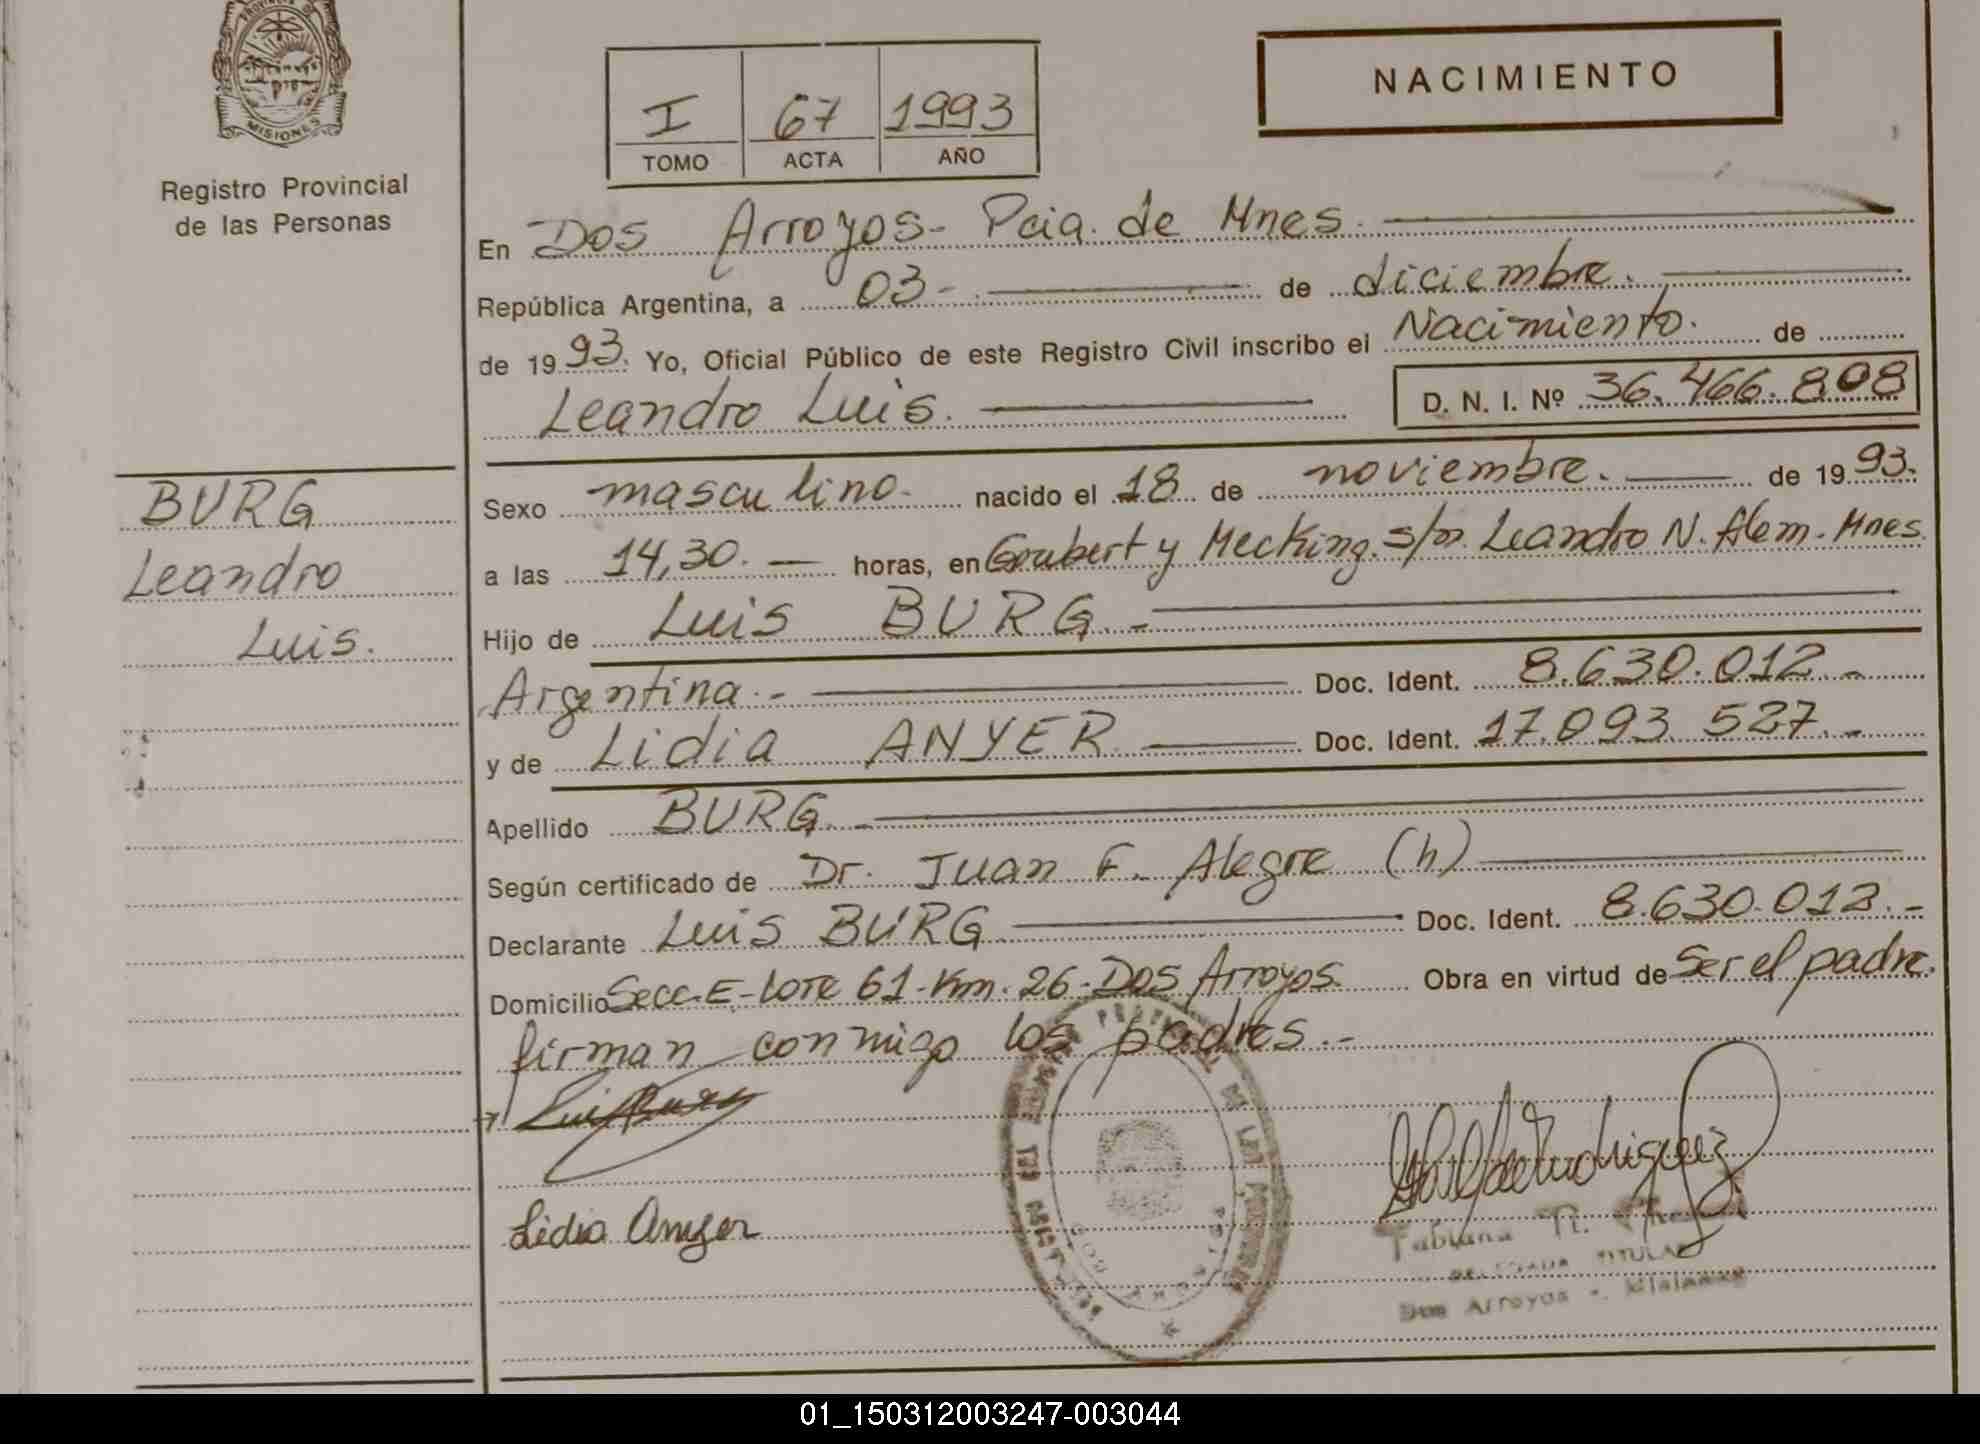 MISIONES
Registro Provincial
de las Personas
I 67 1993
TOMO ACTA AÑO
NACIMIENTO
En Dos Arroyos- Pcia. de Mnes.
República Argentina, a 03- de diciembre.
de 1993. Yo, Oficial Público de este Registro Civil inscribo el Nacimiento. de
Leandro Luis. D. N. I. Nº 36.466.808
BURG
Leandro
Luis.
Sexo masculino. nacido el 18 de noviembre. de 1993.
a las 14,30. horas, en Goubert y Mecking. s/n. Leandro N. Alem. Mnes.
Hijo de Luis BURG.-
Argentina.- Doc. Ident. 8.630.012.-
y de Lidia ANYER Doc. Ident. 17.093.527.-
Apellido BURG.-
Según certificado de Dr. Juan F. Alegre (h)
Declarante Luis BURG Doc. Ident. 8.630.012.-
Domicilio Secc.E-Lote 61-Km.26-Dos Arroyos. Obra en virtud de Ser el padre.
firman conmigo los padres.-
Luis Burg
Lidia Anyer
Fabiana
TITULAR
Dos Arroyos - Misiones
01_150312003247-003044